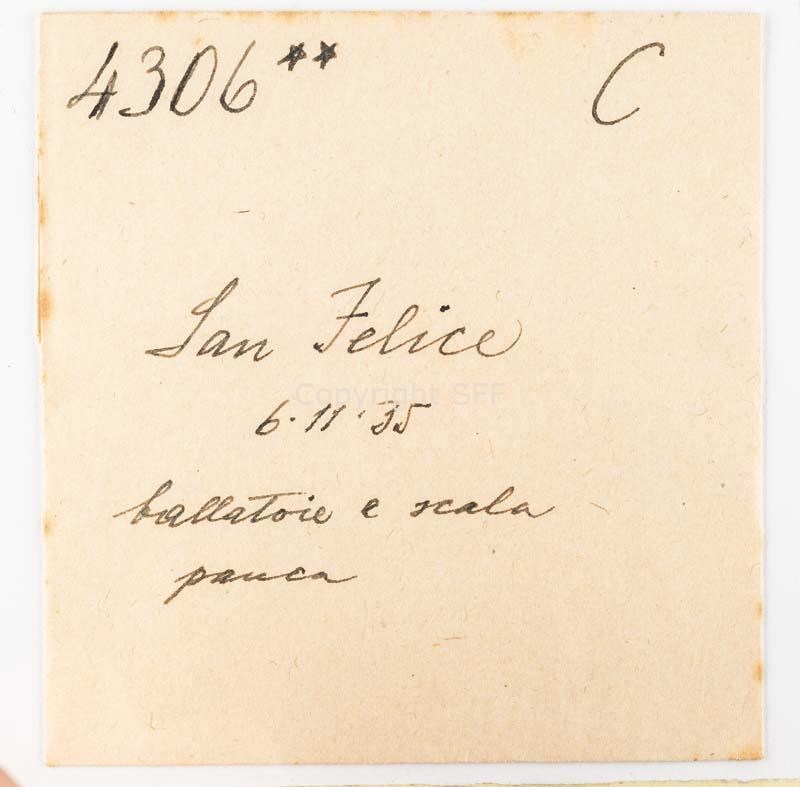 4306** C
San Felice
Copyright SFF
6·11·35
ballatoie e scala
panca